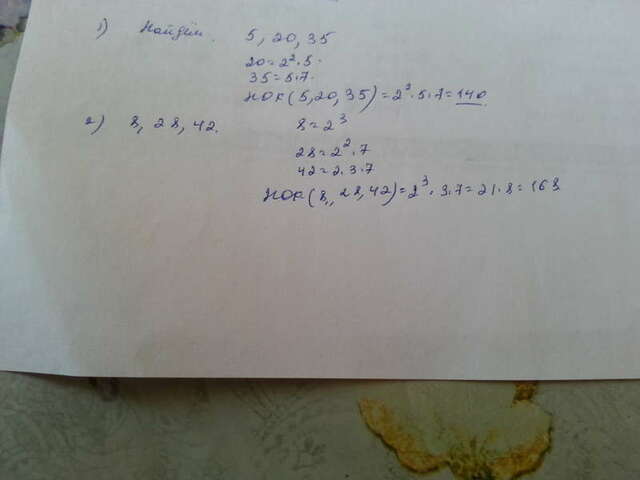 1) Найдём. 5, 20, 35
20=2²·5·
35=5·7·
НОК(5,20,35)=2²·5·7=140.
2) 8, 28, 42. 8=2³
28=2²·7
42=2·3·7
НОК(8, 28,42)=2³·3·7=21·8=168